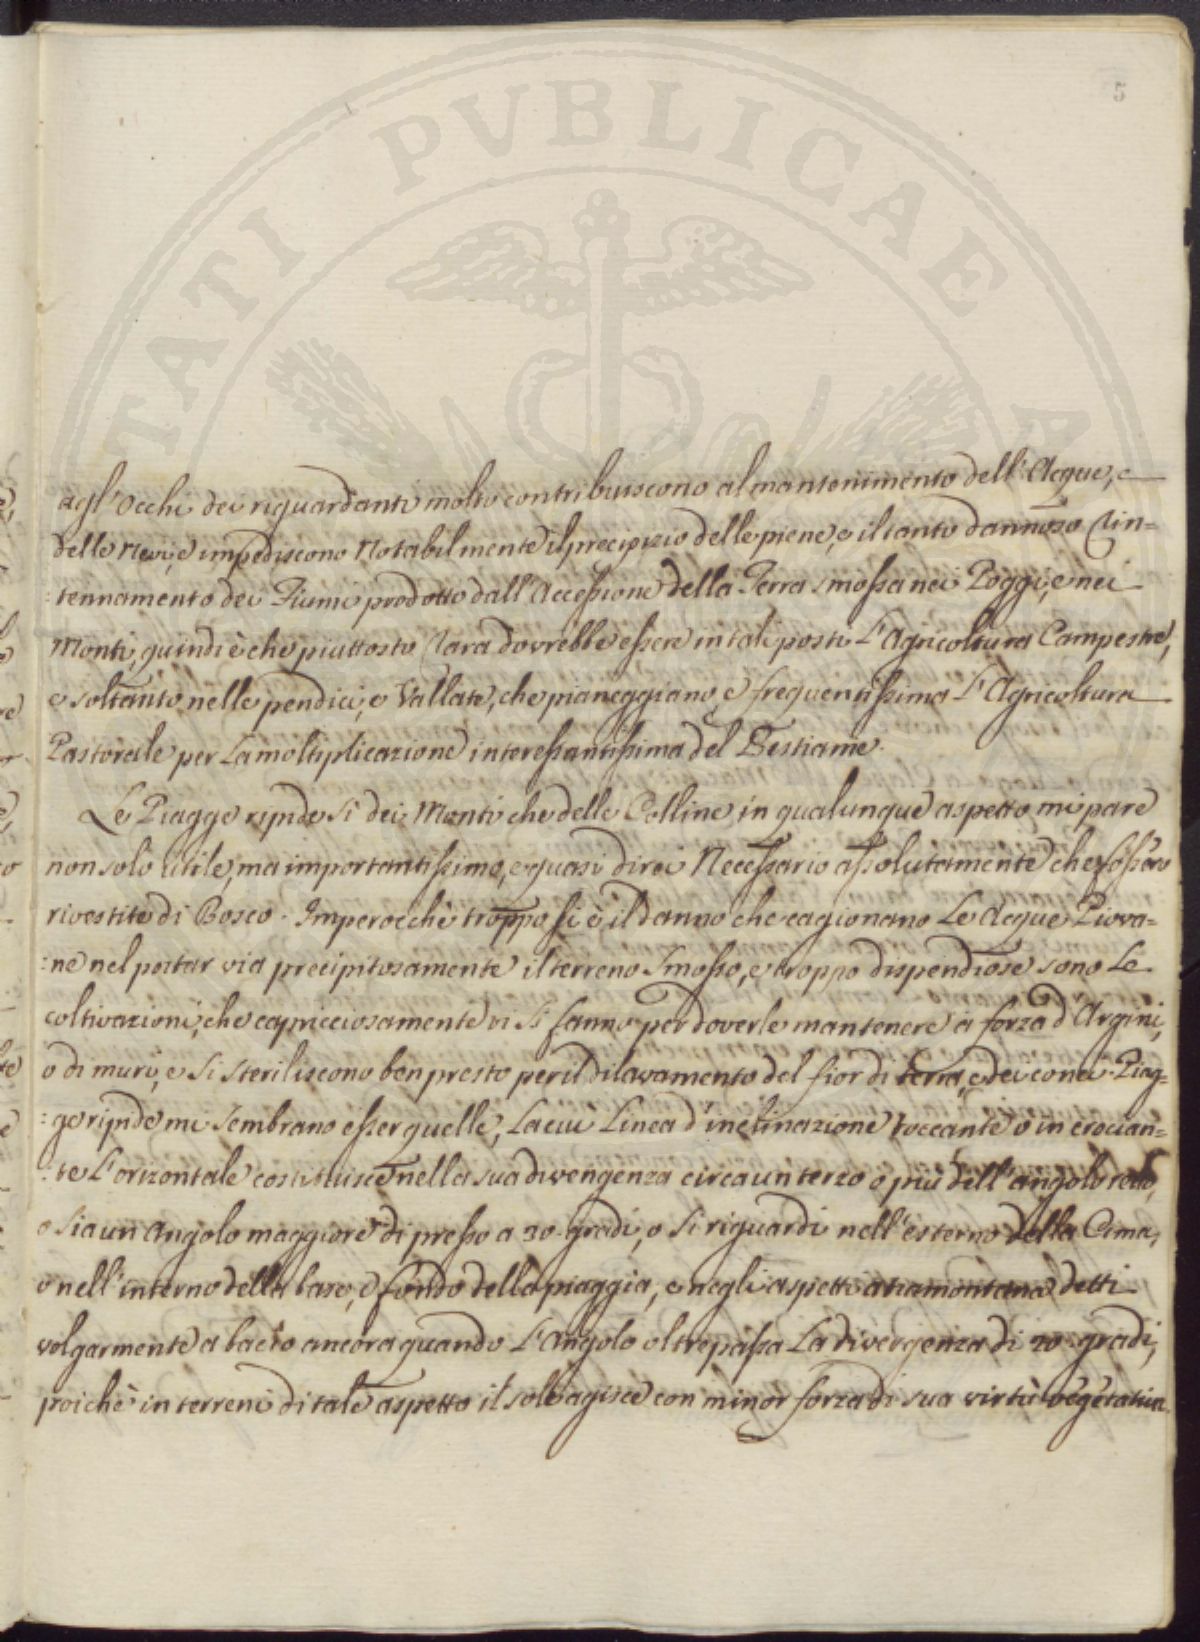 5
agl'Occhi dei riguardanti molto contribuiscono al mantenimento dell'Acque, e
delle Nevi, e impediscono Notabilmente il precipizio delle piene, e il tanto dannoso Rin=
:tennamento dei Fiumi prodotto dall'Accessione della Terra smossa nei Poggi, e nei
Monti, quindi è che piuttosto Rara dovrebbe essere in tali posti L'Agricoltura Campestre,
e soltanto nelle pendici, e Vallate, che pianeggiano, e frequentissima L'Agricoltura
Pastorale per La moltiplicazione interessantissima del Bestiame.
Le Piagge ripide sì dei Monti che delle Colline in qualunque aspetto mi pare
non solo utile, ma importantissimo, e quasi direi Necessario assolutamente che fossero
rivestite di Bosco. Imperocchè troppo si è il danno che cagionano Le Acque Piova=
:ne nel portar via precipitosamente il terreno smosso, e troppo dispendiose sono Le
coltivazioni, che capricciosamente vi si fanno per doverle mantenere a forza d'Argini,
o di muri, e si steriliscono ben presto per il dilavamento del fior di terra, e dei conci. Piag=
:ge ripide mi sembrano esser quelle, La cui Linea d'inclinazione toccante o incrocian=
:te L'orizontale costituisce nella sua divengenza circa un terzo o più dell'angolo retto,
o sia un Angolo maggiore di presso a 30. gradi, o si riguardi nell'esterno della Cima,
o nell'interno della base, e fondo della piaggia, e negli aspetti a tramontana detti
volgarmente a bacìo ancora quando L'Angolo oltrepassa La divergenza di 20. gradi,
poichè in terreni di tale aspetto il sole agisce con minor forza di sua virtù vegetativa
TATI PVBLICAE